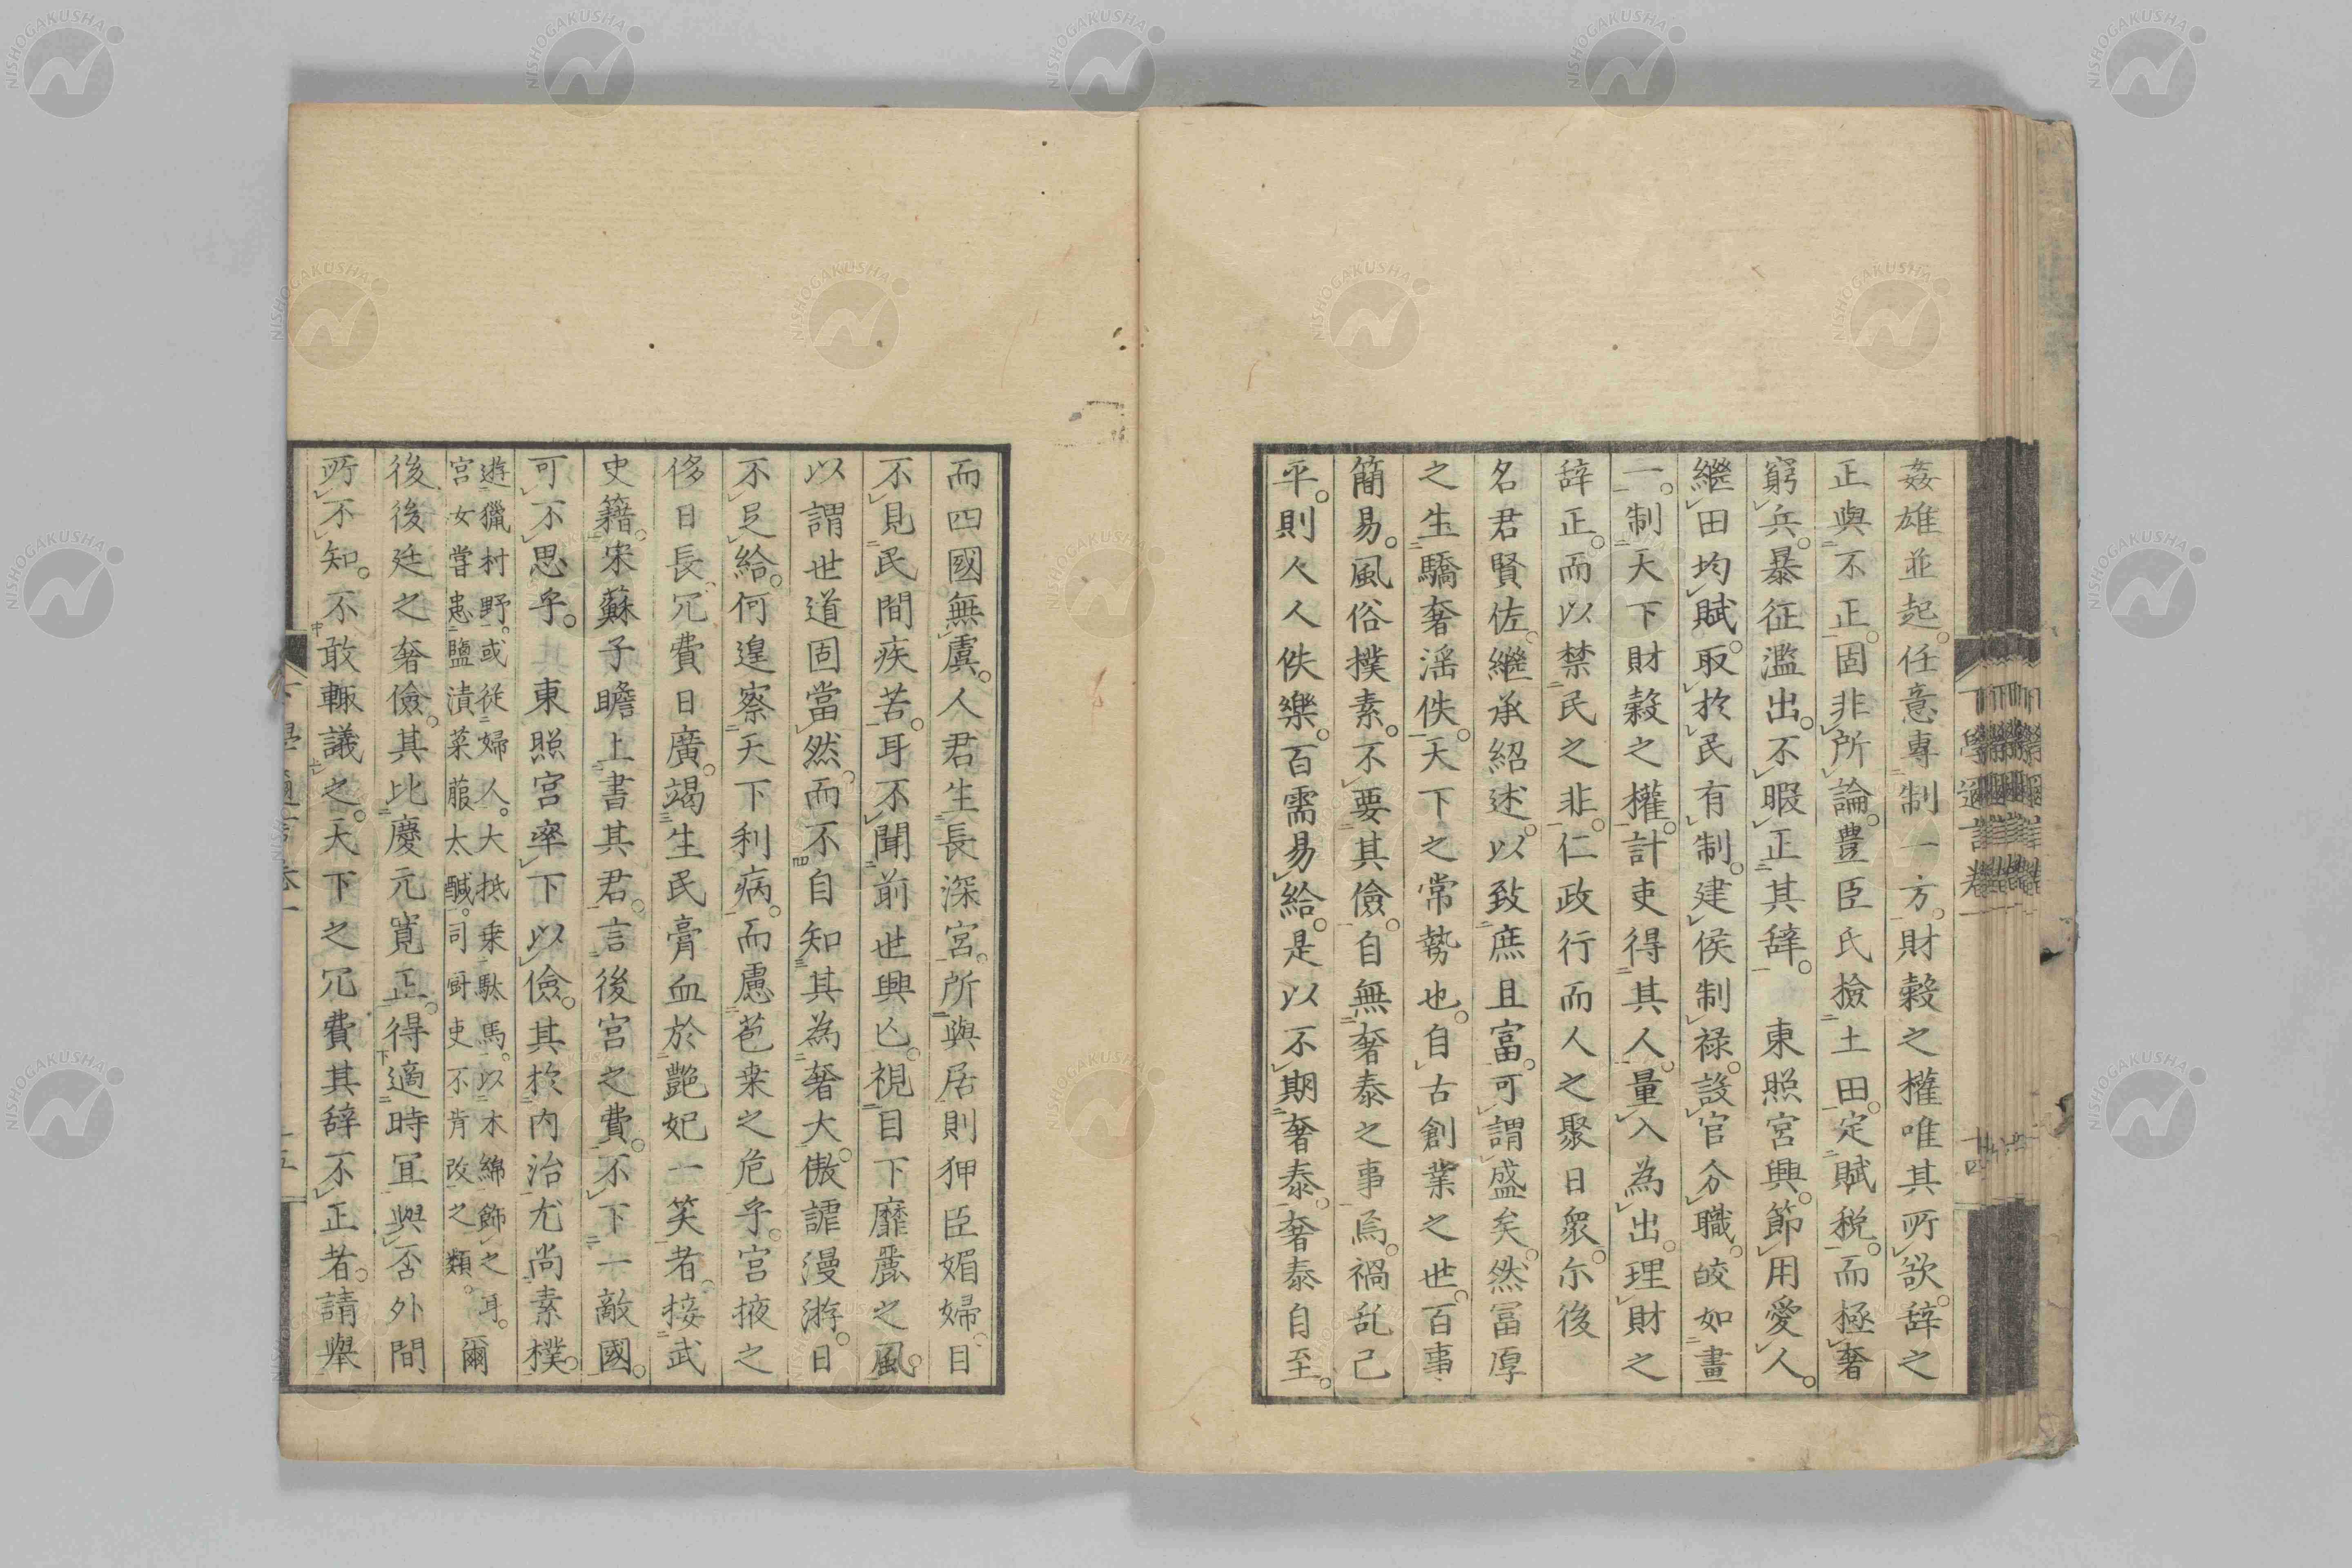 姦雄並起。任意專制一方。財穀之權唯其所欲。辞之
正與不正。固非所論。豊臣氏撿土田。定賦税。而極奢
窮兵。暴征濫出。不暇正其辞。東照宮興。節用愛人。
繼田均賦。取於民有制。建侯制祿。設官分職。皎如畫
一。制天下財穀之權。計吏得其人。量入為出。理財之
辞正。而以禁民之非。仁政行而人之聚日衆。尓後
名君賢佐。繼承紹述。以致庶且富。可謂盛矣。然冨厚
之生驕奢滛佚。天下之常勢也。自古創業之世。百事
簡易。風俗撲素。不要其儉。自無奢泰之事焉。禍乱已
平。則人人佚樂。百需易給。是以不期奢泰。奢泰自至。
下學邇言卷一
十四
而四國無虞。人君生長深宮。所與居則狎臣媚婦。目
不見民間疾苦。耳不聞前世興亾。視目下靡麗之風。
以謂世道固當然。而不自知其為奢大。傲謔漫游。日
不足給。何遑察天下利病。而慮苞桒之危乎。宮掖之
侈日長。冗費日廣。竭生民膏血於艶妃一笑者。接武
史籍。宋蘇子瞻上書其君。言後宮之費。不下一敵國。
可不思乎。東照宮率下以儉。其於内治尤尚素樸。
遊獵村野。或従婦人。大抵乗駄馬。以木綿飾之耳。
宮女嘗患鹽漬菜菔太鹹。司厨吏不肯改之類。爾
後後廷之奢儉。其比慶元寛正。得適時冝與否外間
所不知。不敢輙議之。天下之冗費其辞不正者。請舉
下學邇言卷一
十五